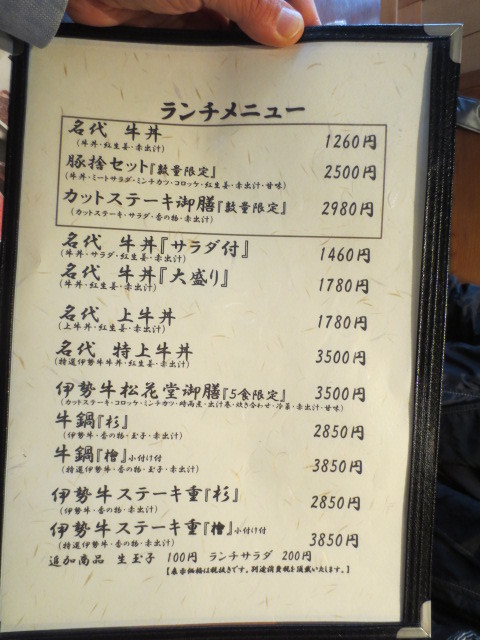 ランチメニュー
名代 牛丼 1260円
(牛丼・紅生姜・赤出汁)
豚捨セット『数量限定』 2500円
(牛丼・ミートサラダ・ミンチカツ・コロッケ・紅生姜・赤出汁・甘味)
カットステーキ御膳『数量限定』 2980円
(カットステーキ・サラダ・香の物・赤出汁)
名代 牛丼『サラダ付』 1460円
(牛丼・サラダ・紅生姜・赤出汁)
名代 牛丼『大盛り』 1780円
(牛丼・紅生姜・赤出汁)
名代 上牛丼 1780円
(上牛丼・紅生姜・赤出汁)
名代 特上牛丼 3500円
(特選伊勢牛牛丼・紅生姜・赤出汁)
伊勢牛松花堂御膳『5食限定』 3500円
(カットステーキ・コロッケ・ミンチカツ・時雨煮・出汁巻・炊き合わせ・沙菜・赤出汁・甘味)
牛鍋『杉』 2850円
(伊勢牛・香の物・玉子・赤出汁)
牛鍋『檜』小付け付 3850円
(特選伊勢牛・香の物・玉子・赤出汁)
伊勢牛ステーキ重『杉』 2850円
(伊勢牛・香の物・赤出汁)
伊勢牛ステーキ重『檜』小付け付 3850円
(特選伊勢牛・香の物・赤出汁)
追加商品 生玉子 100円 ランチサラダ 200円
【表示価格は税抜きです。別途消費税を頂戴いたします。】